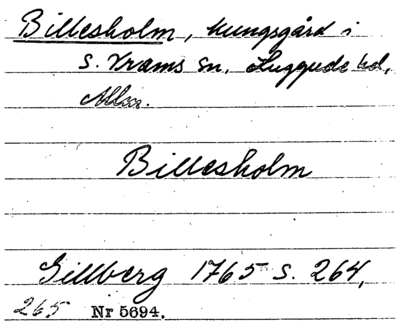 Billesholm, kungsgård i
S. Krams sn, Luggude hd,
Mlhs.
Billesholm
Gillberg 1765 s. 264,
265 Nr 5694.